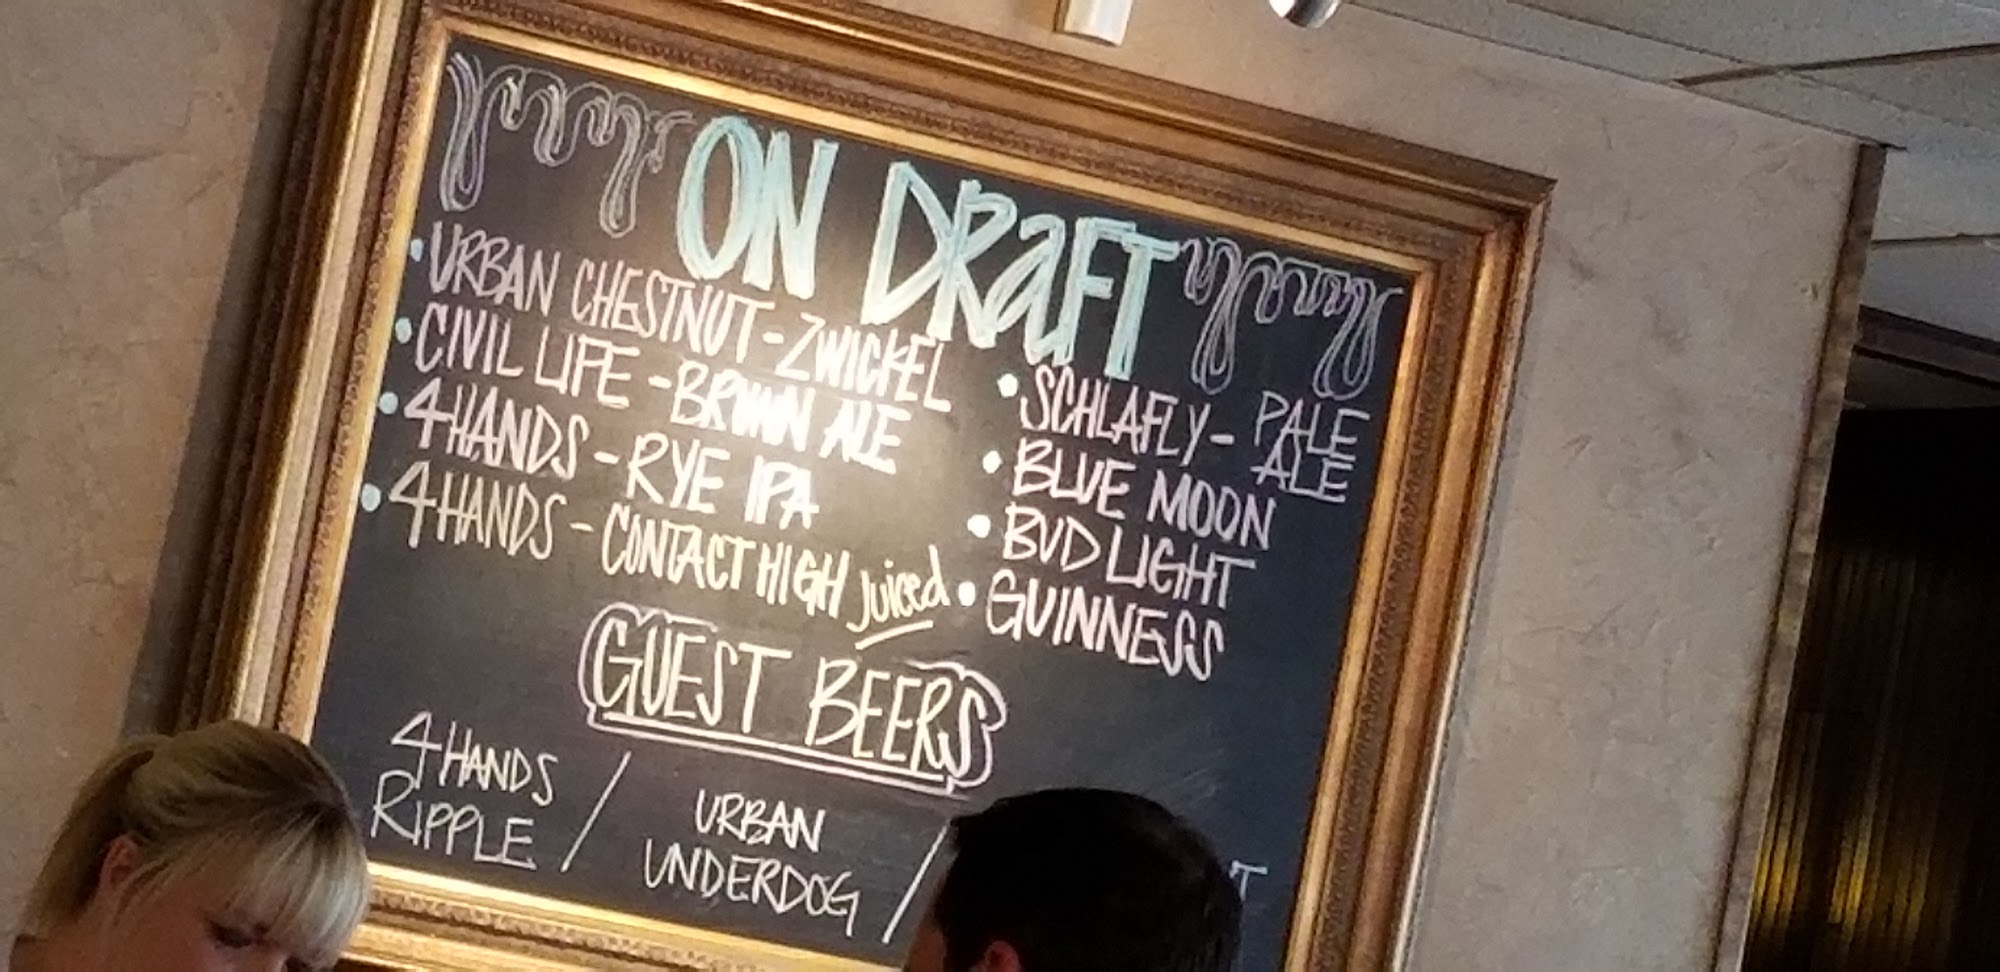 ON DRAFT
• URBAN CHESTNUT - ZWICKEL
• CIVIL LIFE - BROWN ALE
• 4 HANDS - RYE IPA
• 4 HANDS - CONTACT HIGH Juiced
• SCHLAFLY - PALE
ALE
• BLUE MOON
• BUD LIGHT
• GUINNESS
GUEST BEERS
4 HANDS
RIPPLE /
URBAN
UNDERDOG /